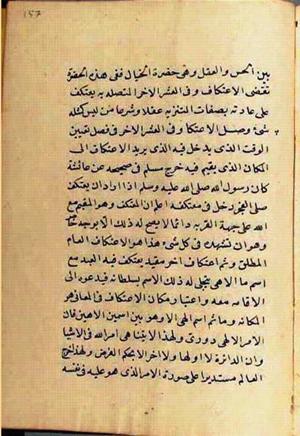 ١٥٧
بين الحس والعقل وهو حضرة الخيال ففي هذه الحضرة
تقتضي الاعتكاف وفي العشر الاخر لتتصله به يعتكف
على عادته بصفات التنزيه عقلا وشرعا من ليس كمثله
شئ وصل الاعتكاف في العشر الاخر في فصل تعيين
الوقت الذي يدخل فيه الذي يريد الاعتكاف الى
المكان الذي يقيم فيه خرج مسلم في صحيحه عن عائشة
كان رسول الله صلى الله عليه وسلم اذا اراد ان يعتكف
صلى الفجر ثم دخل في معتكفه اعلم ان المعتكف وهو المقيم مع
الله على جهة القربة دائما لا يصح له ذلك الا بوجه خاص
وهو ان تشهده في كل شيء هذا هو الاعتكاف العام
المطلق وثم اعتكاف اخر مقيد يعتكف فيه العبد مع
اسم ما الاهي يتجلى له ذلك الاسم بسلطانه فيدعوه الى
الاقامة معه واعتبار مكان الاعتكاف في المعاني هو
المكانة وما ثم اسم الهي الا وهو بين اسمين الاهيين فان
الامر الالهي دوري ولهذا لا يتناهى امر الله في الاشيا
وان الدائرة لا اول لها ولا اخر الا بحكم الفرض ولهذا خرج
العالم مستديرا على صورة الامر الذي هو عليه في نفسه